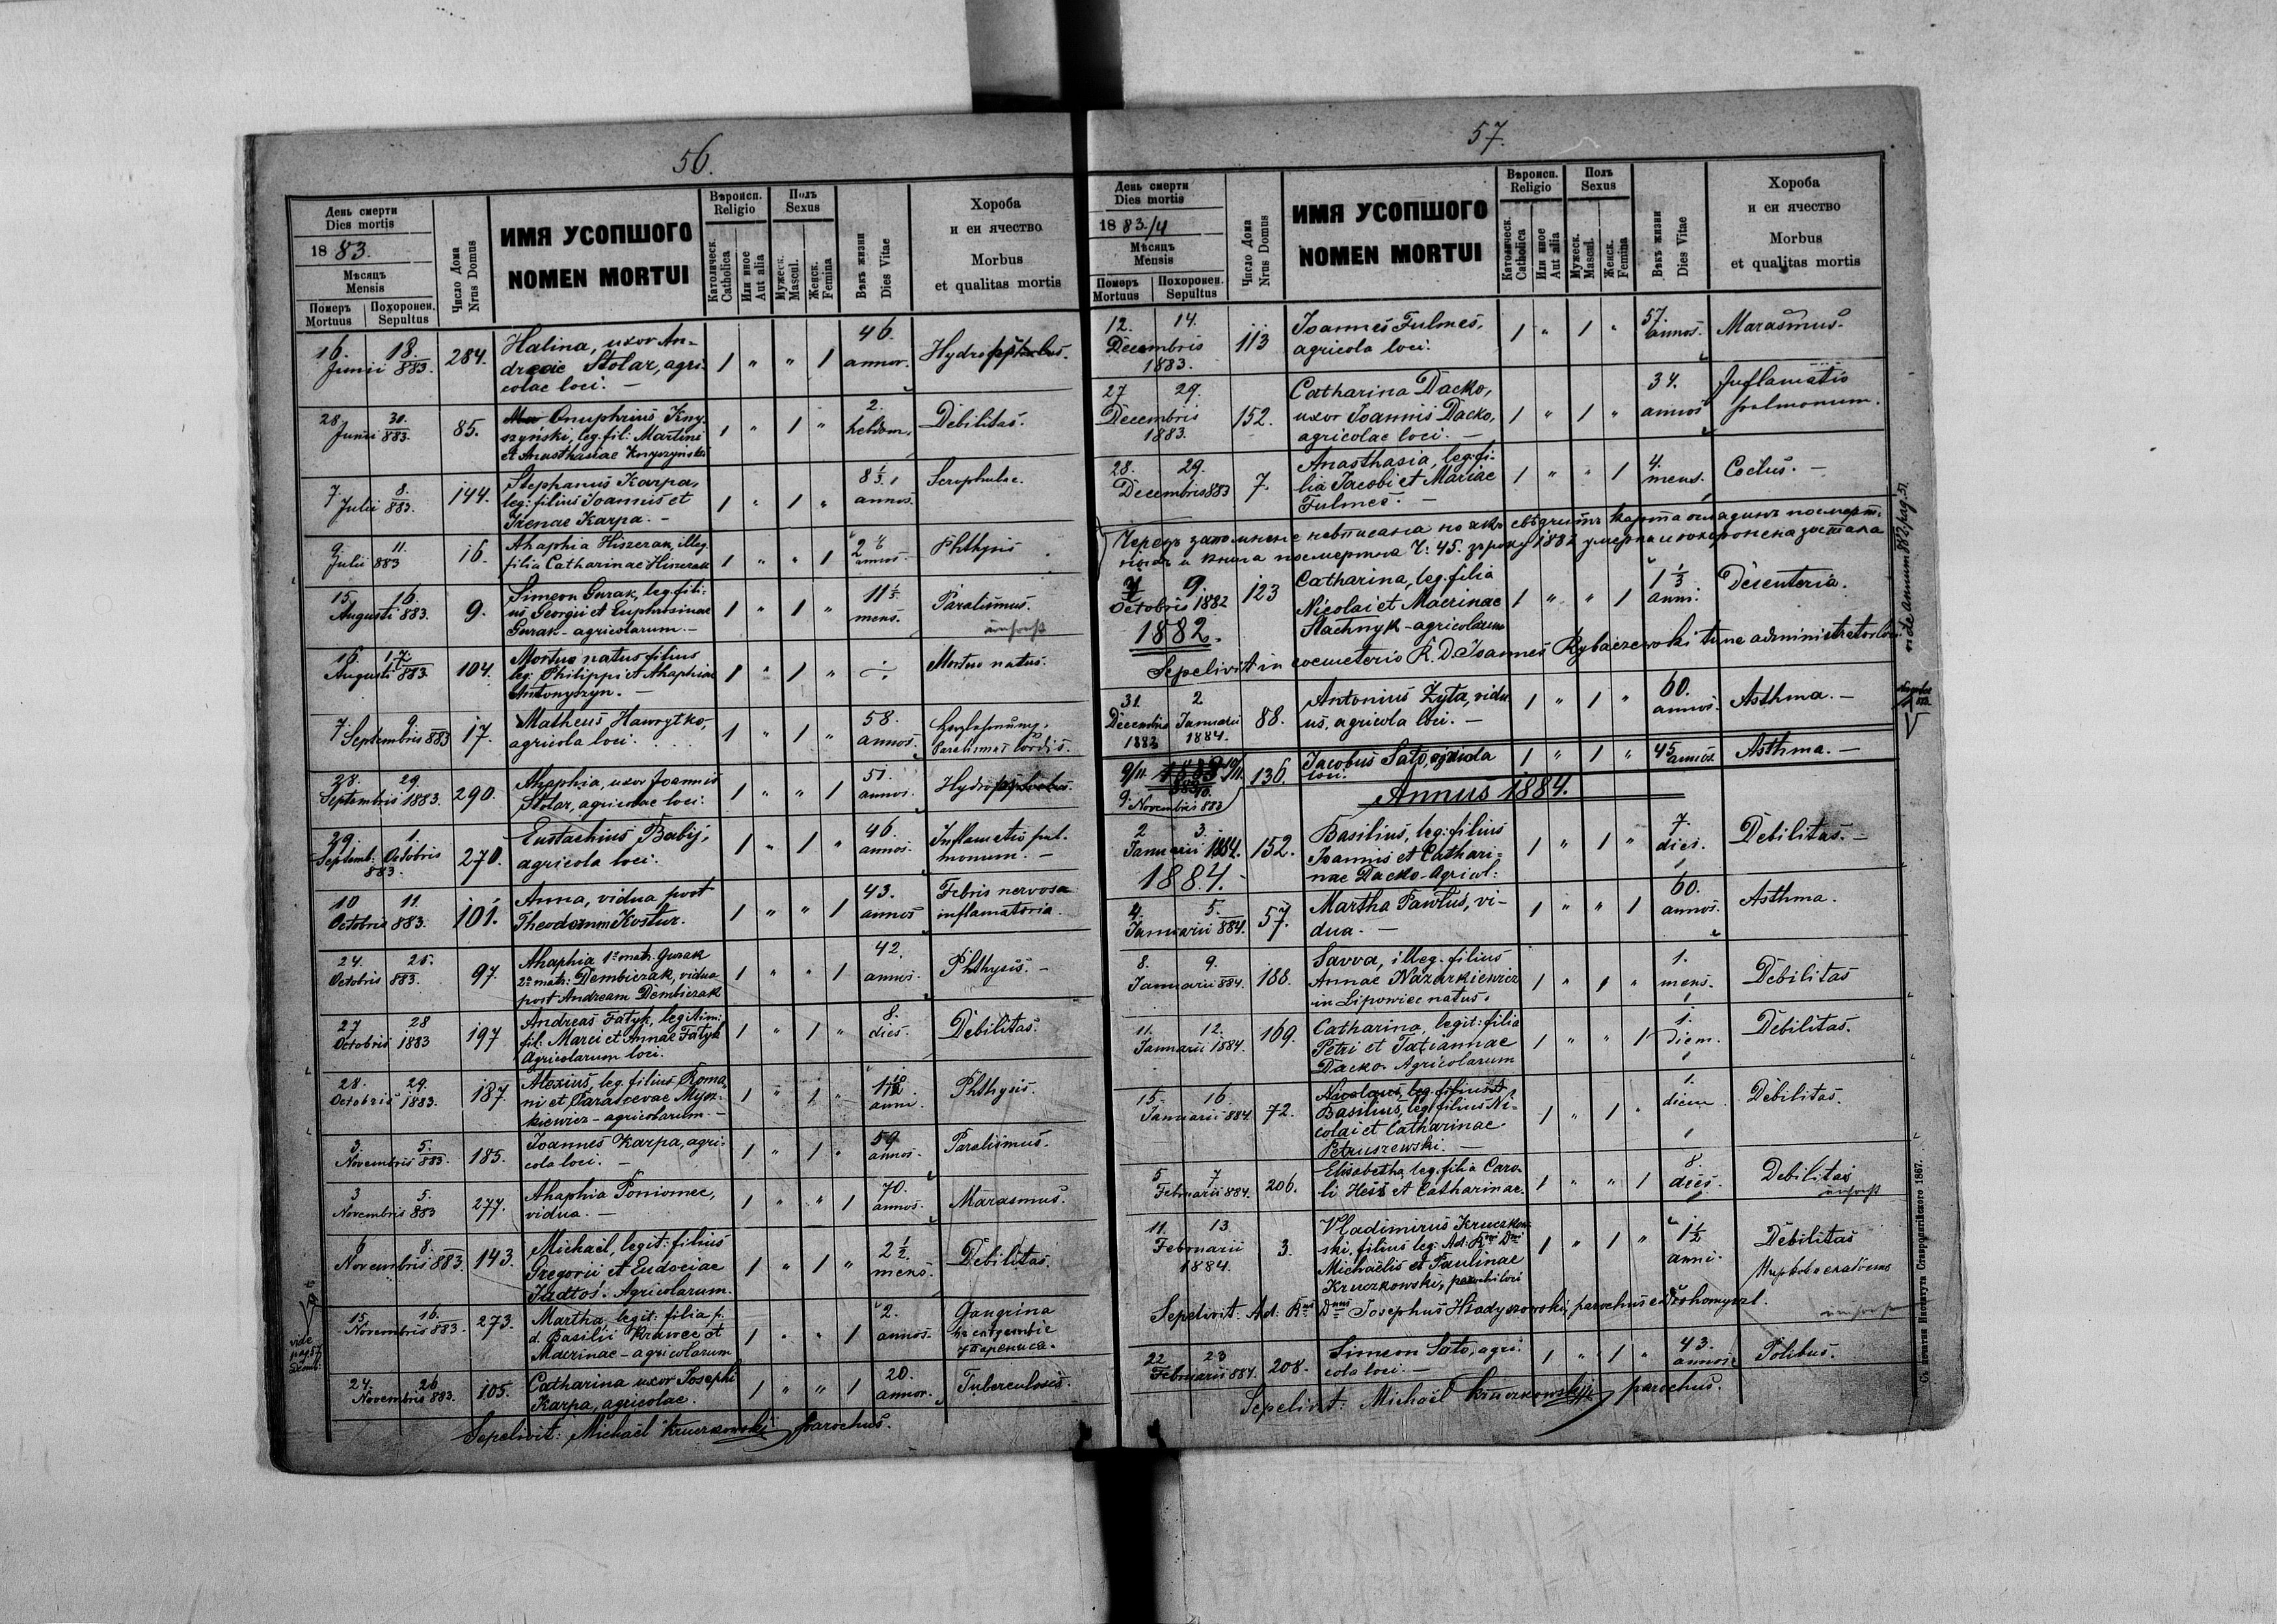 56.
День смерти
Dies mortis
1883.
Мѣсяцъ
Mensis
Померъ
Mortuus
Похоронен.
Sepultus
Число Дома
Nrus Domus
ИМЯ УСОПШОГО
NOMEN MORTUI
Вѣроисп.
Religio
Католическ.
Catholica
Или иное
Aut alia
Полъ
Sexus
Мужеск.
Mascul.
Женск.
Femina
Вѣкъ жизни
Dies Vitae
Хороба
и еи ячество
Morbus
et qualitas mortis
16. 18. Junii 883. 284. Halina, uxor An-
dreae Stolar, agri-
colae loci. — 1 " " 1 46. annor.
28 30. Junii 883. 85. Onuphrius Kny-
szyński, leg. fil: Martini
et Anasthasiae Knyszyński 1 " 1 " 2. hebdom. Debilitas.
7 8. Julii 883. 144. Stephanus Karpa,
leg: filius Joannis et
Irenae Karpa. — 1 " 1 " 8 1/3. annos. Scrophulae.
9 11. Julii 883 16. Ahaphia Hiszczak, illeg.
filia Catharinae Hiszczak 1 " " 1 2 annos. Phthysis
15. 16. Augusti 883. 9. Simeon Gurak, leg. fili-
us Georgii et Euphrosinae
Gurak - agricolarum. — 1 " 1 " 11 1/3 mens. Paralismus.
16. 17. Augusti 883. 104. Mortuo natus filius
leg: Philippi et Ahaphiae
Antonyszyn. — 1 " 1 " Mortuo natus.
7. 9. Septembris 883 17. Matheus Hawrytko,
agricola loci. 1 " 1 " 58. annos. Paralismus cordis.
28. 29. Septembris 1883. 290. Ahaphia, uxor Joannis
Stolar, agricolae loci. 1 " " 1 51. annos.
29. 1. Septemb: Octobris 883. 270. Eustachius Babij,
agricola loci. 1 " 1 " 46. annos. Inflametio pul-
monum. —
10 11. Octobris 883. 101. Anna, vidua post
Theodorum Kostur. 1 " " 1 43. annos Febris nervosa
inflamatoria.
24. 25. Octobris 883. 97. Ahaphia 1º matr. Gurak
2º matr: Dembiczak, vidua
post Andream Dembiczak 1 " " 1 42. annos. Phthysis. —
27 28 Octobris 1883 197 Andreas Fatyk, legitim:
fil: Marci et Annae Fatyk
Agricolarum loci. 1 " 1 " 8. dies. Debilitas.
28. 29. Octobris 1883. 187. Alexius, leg. filius Roma-
ni et Parascevae Mysz-
kiewicz - agricolarum. — 1 " 1 " anni. Phthysis.
3. 5. Novembris 883. 185. Joannes Karpa, agri-
cola loci. — 1 " 1 " 59 annos. Paralismus.
3 5. Novembris 883 277. Ahaphia Poniomec,
vidua. — 1 " " 1 70. annos. Marasmus.
6 8. Novembris 883 143. Michaël, legit: filius
Gregorii et Eudociae
Agricolarum. 1 " 1 " 2 1/2. mens. Debilitas.
15. 16. Novembris 883. 273. Martha, legit: filia p.
d. Basilii Krawec et
Macrinae - agricolarum 1 " " 1 2. annos. Gangrina
24. 26 Novembris 883. 105. Catharina uxor Josephi
Karpa, agricolae. 1 " " 1 20. annor. Tuberculosis.
vide
pag 57
Sepelivit: Michaël Kruczkowski parochus.
57.
День смерти
Dies mortis
1883/4
Мѣсяцъ
Mensis
Померъ
Mortuus
Похоронен.
Sepultus
Число Дома
Nrus Domus
ИМЯ УСОПШОГО
NOMEN MORTUI
Вѣроисп.
Religio
Католическ.
Catholica
Или иное
Aut alia
Полъ
Sexus
Мужеск.
Mascul.
Женск.
Femina
Вѣкъ жизни
Dies Vitae
Хороба
и еи ячество
Morbus
et qualitas mortis
12. 14. Decembris 1883. 113 Joannes Fulmes,
agricola loci. 1 " 1 " 57. annos. Marasmus.
27 29. Decembris 1883. 152. Catharina Dacko,
uxor Joannis Dacko,
agricolae loci. — 1 " 1 " 34. annos Inflamatio
pulmonum.
28. 29. Decembris 883 7. Anasthasia, leg: fi-
lia Jacobi et Mariae
Fulmes. — 1 " " 1 4. mens. Coclus. —
9. Octobris 1882 123 Catharina, leg. filia
Nicolai et Macrinae
Stachnyk - agricolarum 1 " " 1 1 1/3 anni. Desenteria.
1882.
Sepelivit in coemeterio R. D. Joannes Rybaczewski tunc administrator loci
31. 2 Decembris Januarii 1883 1884. 88. Antonius Zyta, vidu-
us, agricola loci. — 1 " 1 " 60. annos. Asthma. —
9/11. 10/11. 9 Novembris 883 136. Jacobus Sato, agricola
loci. 1 " 1 " 45 annos. Asthma. —
Annus 1884.
2 3. Januarii 1884. 152. Basilius, leg: filius
Joannis et Cathari-
nae Dacko - Agricol: 1 " 1 " 7. dies. Debilitas. —
1884.
4. 5. Januarii 884. 57. Martha Pawlus, vi-
dua. — 1 " " 1 60. annos. Asthma.
8. 9. Januarii 884. 188. Savva, illeg. filius
Annae Nazarkiewicz
in Lipowiec natus. 1 " 1 " 1. mens. Debilitas
11. 12. Januarii 1884. 169. Catharina, legit: filia
Petri et Tatiannae
Dacko. Agricolarum 1 " " 1 1. diem. Debilitas.
15. 16. Januarii 884 72. Nicolaus, leg. filius
Basilius, leg. filius Ni-
colai et Catharinae
Petruszewski. — 1 " 1 " 1. diem Debilitas.
5 7 Februarii 884. 206. Elisabetha leg. filia Caro-
li Hess et Catharinae. 1 " " 1 8. dies. Debilitas
11. 13. Februarii 1884. 3. Vladimirus Kruczkow-
ski, filius leg: Ad: Rmi Dni
Michaëlis et Paulinae
Kruczkowski, parochi loci 1 " 1 " 1 1/2 anni. Debilitas
Sepelivit: Ad: Rms Dnus Josephus Hradyszowskij, parochus e Drohomyszl.
22 23 Februarii 884. 208. Simeon Sato, agri-
cola loci. — 1 " 1 " 43. annos.
Sepelivit: Michaël Kruczkowskij parochus.
vide Annum 882. pag. 51.
Съ печатни Института Ставропигійского 1867.